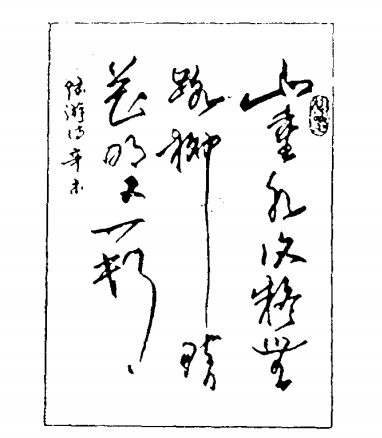 山重水复疑無
路柳暗
花明又一村
陆游诗辛未